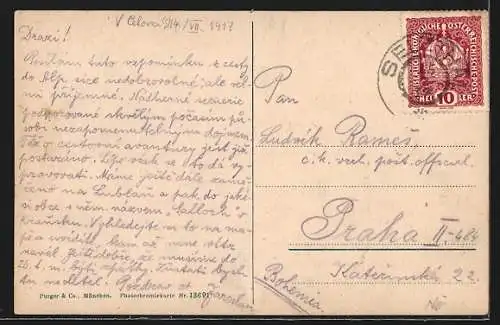 V Celovci 14./VII. 1917
Drazí!
Posílám tuto vzpomínku z cesty
do Alp sice nedobrovolné, ale vel-
mi příjemné. Nádherné scenerie
podporované skvělým počasím pů-
sobí nezapomenutelným dojmem.
Též o cestovní avantury jest již
postaráno. Lépe však se to dá vy-
pravovati. Máme ještě dále namě-
řeno na Lublaň a pak do jaké-
si obce s něm. názvem Salloch v
Kraňsku. Vyhledejte si to na ma-
pě a uvidíte, kam až mne vítr
zavál. Ještě dobře, že musíme do
26. t. m. býti zpátky. Zůstati bych
tu nechtěl. Pozdrav od Jaroslav
Purger & Co., München. Photochromiekarte Nr. 13691
KAISERLICHE KÖNIGLICHE ÖSTERREICHISCHE POST
HEL 10 LER
Pan
Ludvík Rameš
c. k. vrch. pošt. official
Praha II-484
Kateřinská 22.
Bohemia